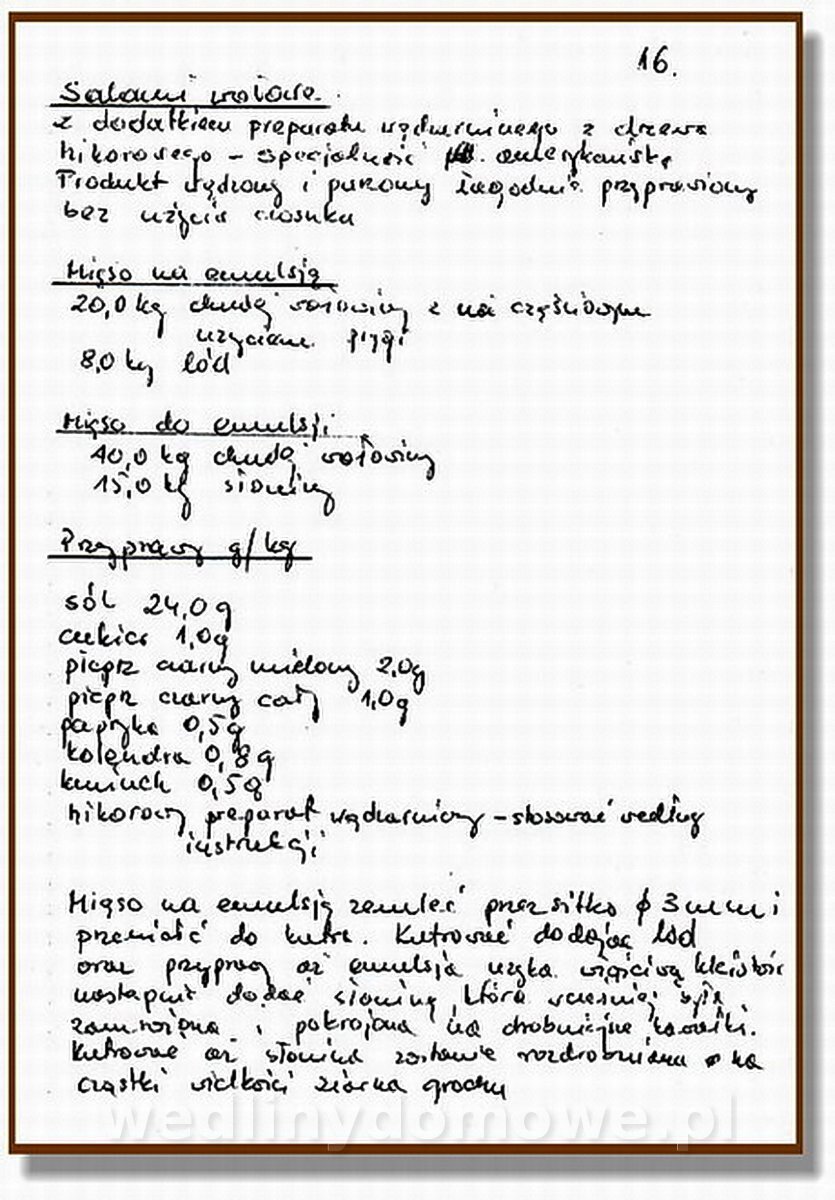 16.
Salami wołowe.
z dodatkiem preparatu wędzarniczego z drzewa
hikorowego – specjalność amerykańska
Produkt wędzony i parzony łagodnie przyprawiony
bez użycia czosnku
Mięso na emulsję
20,0 kg chudej wołowiny z na częściowym
użyciem pręgi
8,0 kg lód
Mięso do emulsji
40,0 kg chudej wołowiny
15,0 kg słoniny
Przyprawy g/kg
sól 24,0g
cukier 1,0g
pieprz czarny mielony 2,0g
pieprz czarny cały 1,0g
papryka 0,5g
kolendra 0,8g
kminek 0,5g
hikorowy preparat wędzarniczy – stosować według
instrukcji
Mięso na emulsję zemleć przez sitko ϕ 3mm i
przenieść do kutra. Kutrować dodając lód
oraz przyprawy aż emulsja uzyska właściwą kleistość
następnie dodać słoninę która wcześniej była
zamrożona i pokrojona na drobniejsze kawałki.
Kutrować aż słonina zostanie rozdrobniona na
cząstki wielkości ziarna grochu
wedlinydomowe.pl